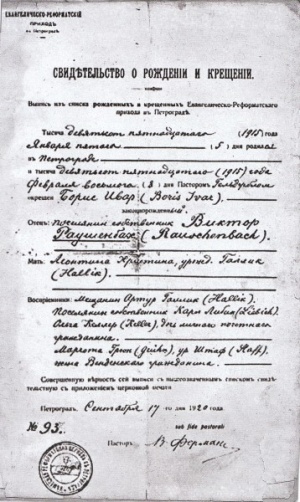 ЕВАНГЕЛИЧЕСКО-РЕФОРМАТСКІЙ
ПРИХОДЪ
въ Петроградѣ.
СВИДѢТЕЛЬСТВО О РОЖДЕНІИ И КРЕЩЕНІИ.
Выпись изъ списка рожденныхъ и крещенныхъ Евангелическо-Реформатскаго
прихода въ Петроградѣ.
Тысяча девятьсот пятнадцатого 1915 года
Января пятого ( 5 ) дня родился
въ Петрограде
и тысяча девятьсот пятнадцатого (1915) года
Февраля восьмого ( 8 ) дня Пасторомъ
крещенъ Борис Ивар (Boris Ivar)
законнорожденный
Отецъ: поселянин собственник Виктор
Раушенбах (Rauschenbach)
Мать: Христина, урожд. Галлик
(Hallik)
Воспріемники: Мещанин Артур Галлик (Hallik).
Поселянин собственник Карл
Ольга Келлер (Keller), дочь личного почетного
гражданина.
Маргота Грюн (Grühn), ур. Штаф (Staff),
жена Венденского гражданина.
Совершенную вѣрность сей выписи съ вышеозначеннымъ спискомъ свидѣ-
тельствую съ приложеніемъ церковной печати
Петроградъ, Сентября 17 го дня 1920 года
№ 93.
sub fide pastorali
Пасторъ